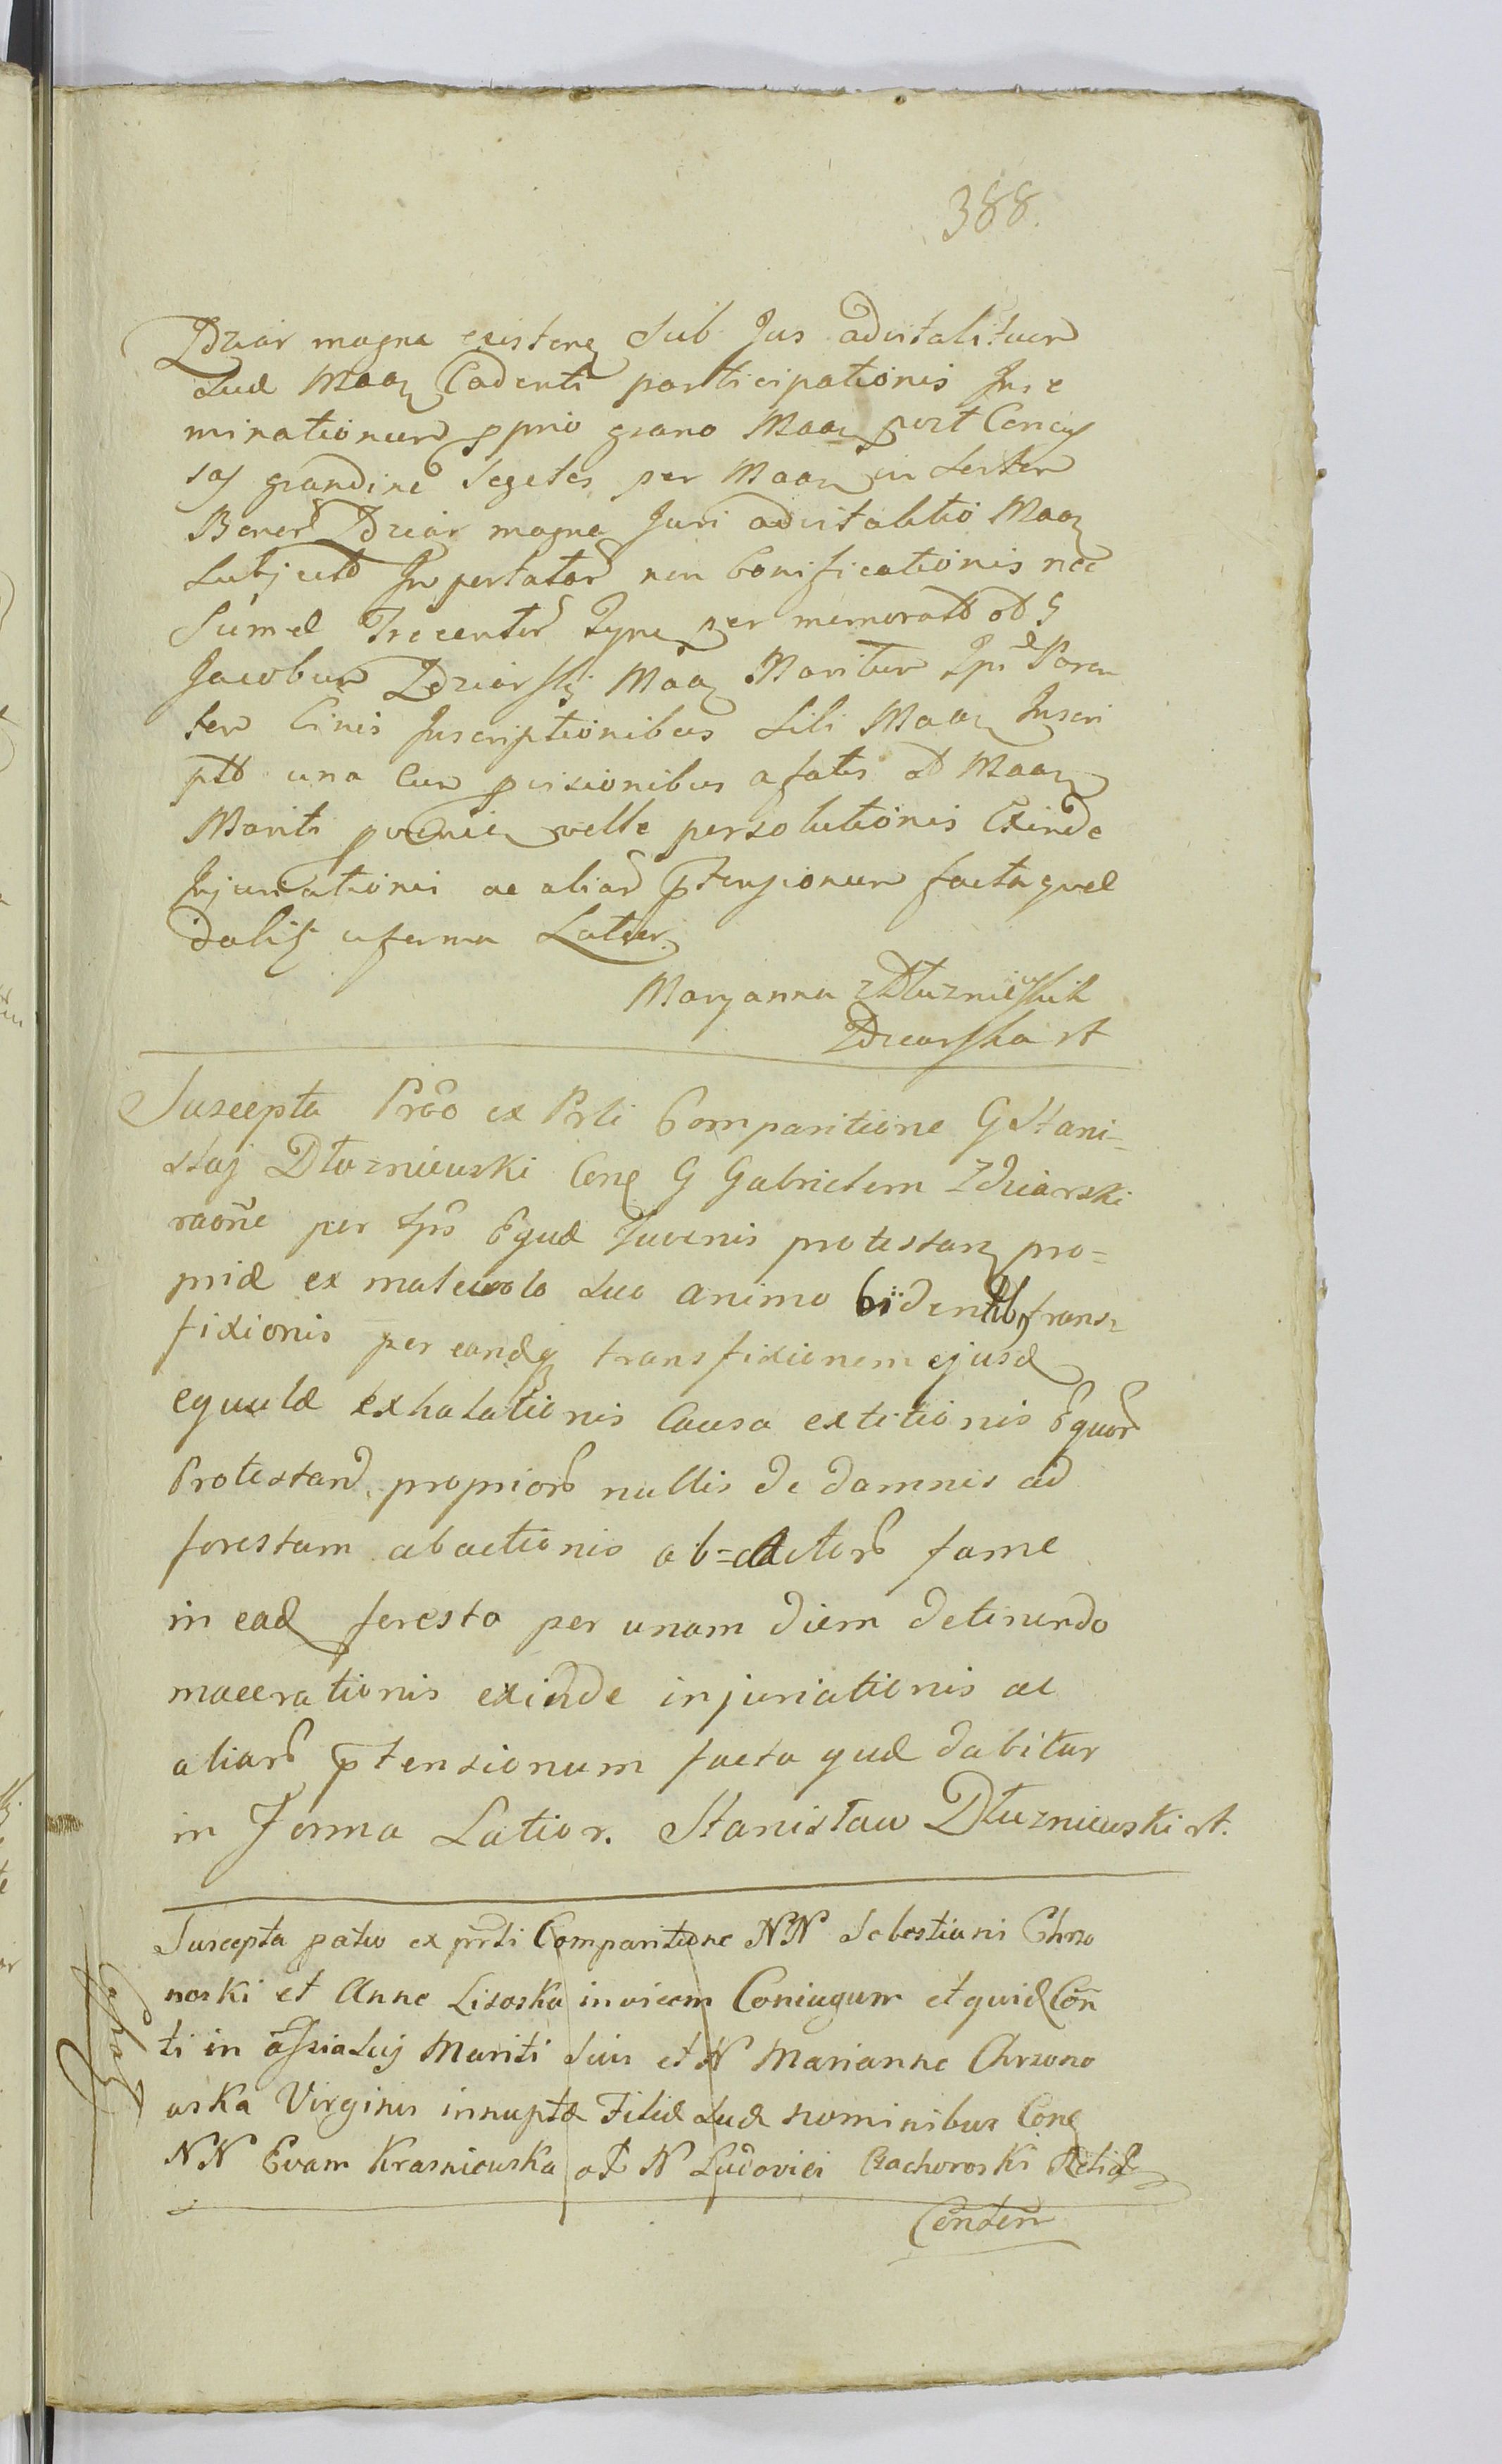 388.
Zdziar magna existen Sub Jus advitalituum
Suæ Maan Cadenti participationis Inse
minationum pprio grano Maan post Concus
sas grandine segetes per Maan in sorten
Bonor Zdziar magna Juri advitalitio Maan
Subject Impertator non bonificationis nec
Summæ Trecentor Tynf per memorat od G
Jacobum Zdziarskj Maan Maritum Ipi Paren
tem Civis Inscriptionibus Sibi Maan Inscri
ptt una cum pvisionibus a fatis od Maan
Mariti pvenien velle persolutionis Exinde
Injuriationis ac aliar ptensionum facta quæ
dabit in forma Latior.
Maryanna z Dłuzniewskich
Zdziarska st
Suscepta Prõo ex Prti Comparitione G Stani=
slaj Dłuzniewski Cone G Gabrielem Zdziarski
raõne per Ips Equæ Juvenis protestan pro=
priæ ex malevolo suo animo bidentib trans=
fixionis per eandq transfixionem ejusd
equulæ exhalationis Causa extitionis Equor
Protestand proprior nullis de damnis ad
forestam abactionis ab=actor fame
in ead foresta per unam diem detinendo
macerationis exinde injuriationis ac
aliar ptensionum facta quæ dabitur
in Forma Latior. Stanisław Dłuzniewski st.
Suscepta patio ex prti Comparitione NN Sebestiani Chrzo
noski et Anne Lisoska invicem Coniugum et quid Con
ti in assia Suj Mariti Suis et N Marianne Chrzono
uska Virginis innuptæ Filiæ Suæ nominibus Cone
NN Evam Krasniewska od N Ludovici Czachoroski Relid
Consten